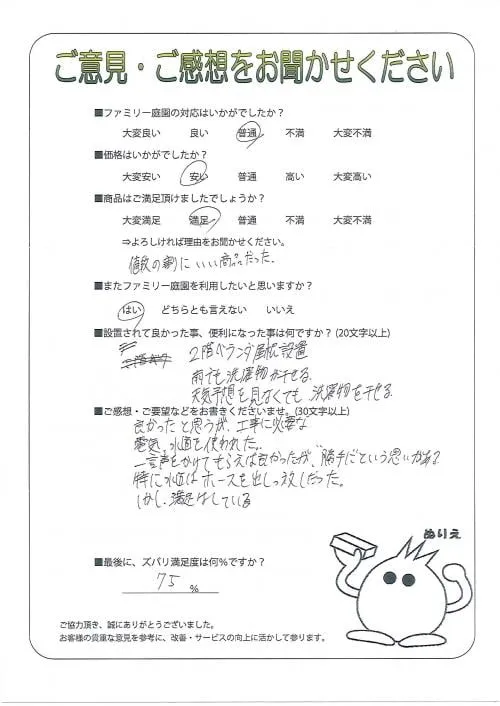 ご意見・ご感想をお聞かせください
■ファミリー庭園の対応はいかがでしたか？
大変良い 良い 普通 不満 大変不満
■価格はいかがでしたか？
大変安い 安い 普通 高い 大変高い
■商品はご満足頂けましたでしょうか？
大変満足 満足 普通 不満 大変不満
⇒よろしければ理由をお聞かせください。
値段の割にいい商品だった。
■またファミリー庭園を利用したいと思いますか？
はい どちらとも言えない いいえ
■設置されて良かった事、便利になった事は何ですか？(20文字以上)
2階ベランダ屋根設置
雨でも洗濯物が干せる
天気予想を見なくても洗濯物を干せる
■ご感想・ご要望などをお書きくださいませ。(30文字以上)
良かったと思うが、工事に必要な
電気、水道を使われた。
一言声をかけてもらえば良かったが、勝手にという思いがある
特に水道はホースを出しっ放しだった。
しかし、満足はしている
ぬりえ
■最後に、ズバリ満足度は何％ですか？
75 ％
ご協力頂き、誠にありがとうございました。
お客様の貴重な意見を参考に、改善・サービスの向上に活かして参ります。